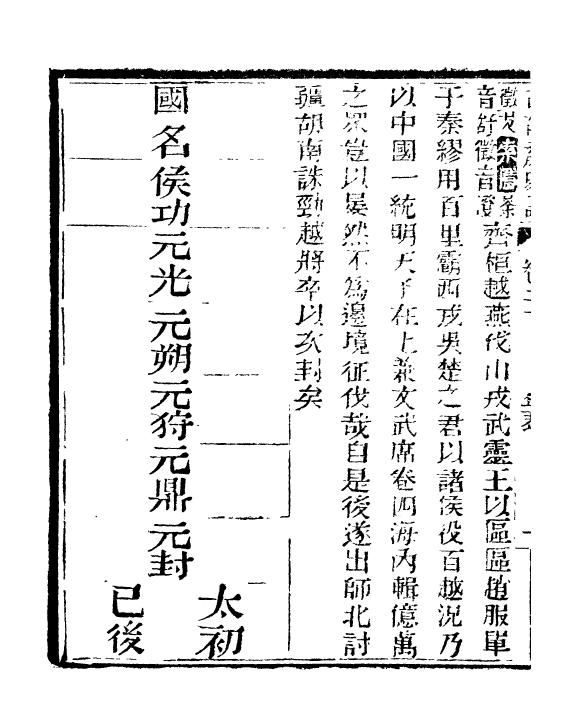 音舒徵音澄齊桓越燕伐山戎武靈王以區區趙服單
于秦繆用百里霸西戎吳楚之君以諸侯役百越況乃
以中國一統明天子在上兼文武席卷四海內輯億萬
之眾豈以晏然不為邊境征伐哉自是後遂出師北討
疆胡南誅勁越將卒以次封矣
國名侯功元光元朔元狩元鼎元封
太初
已後